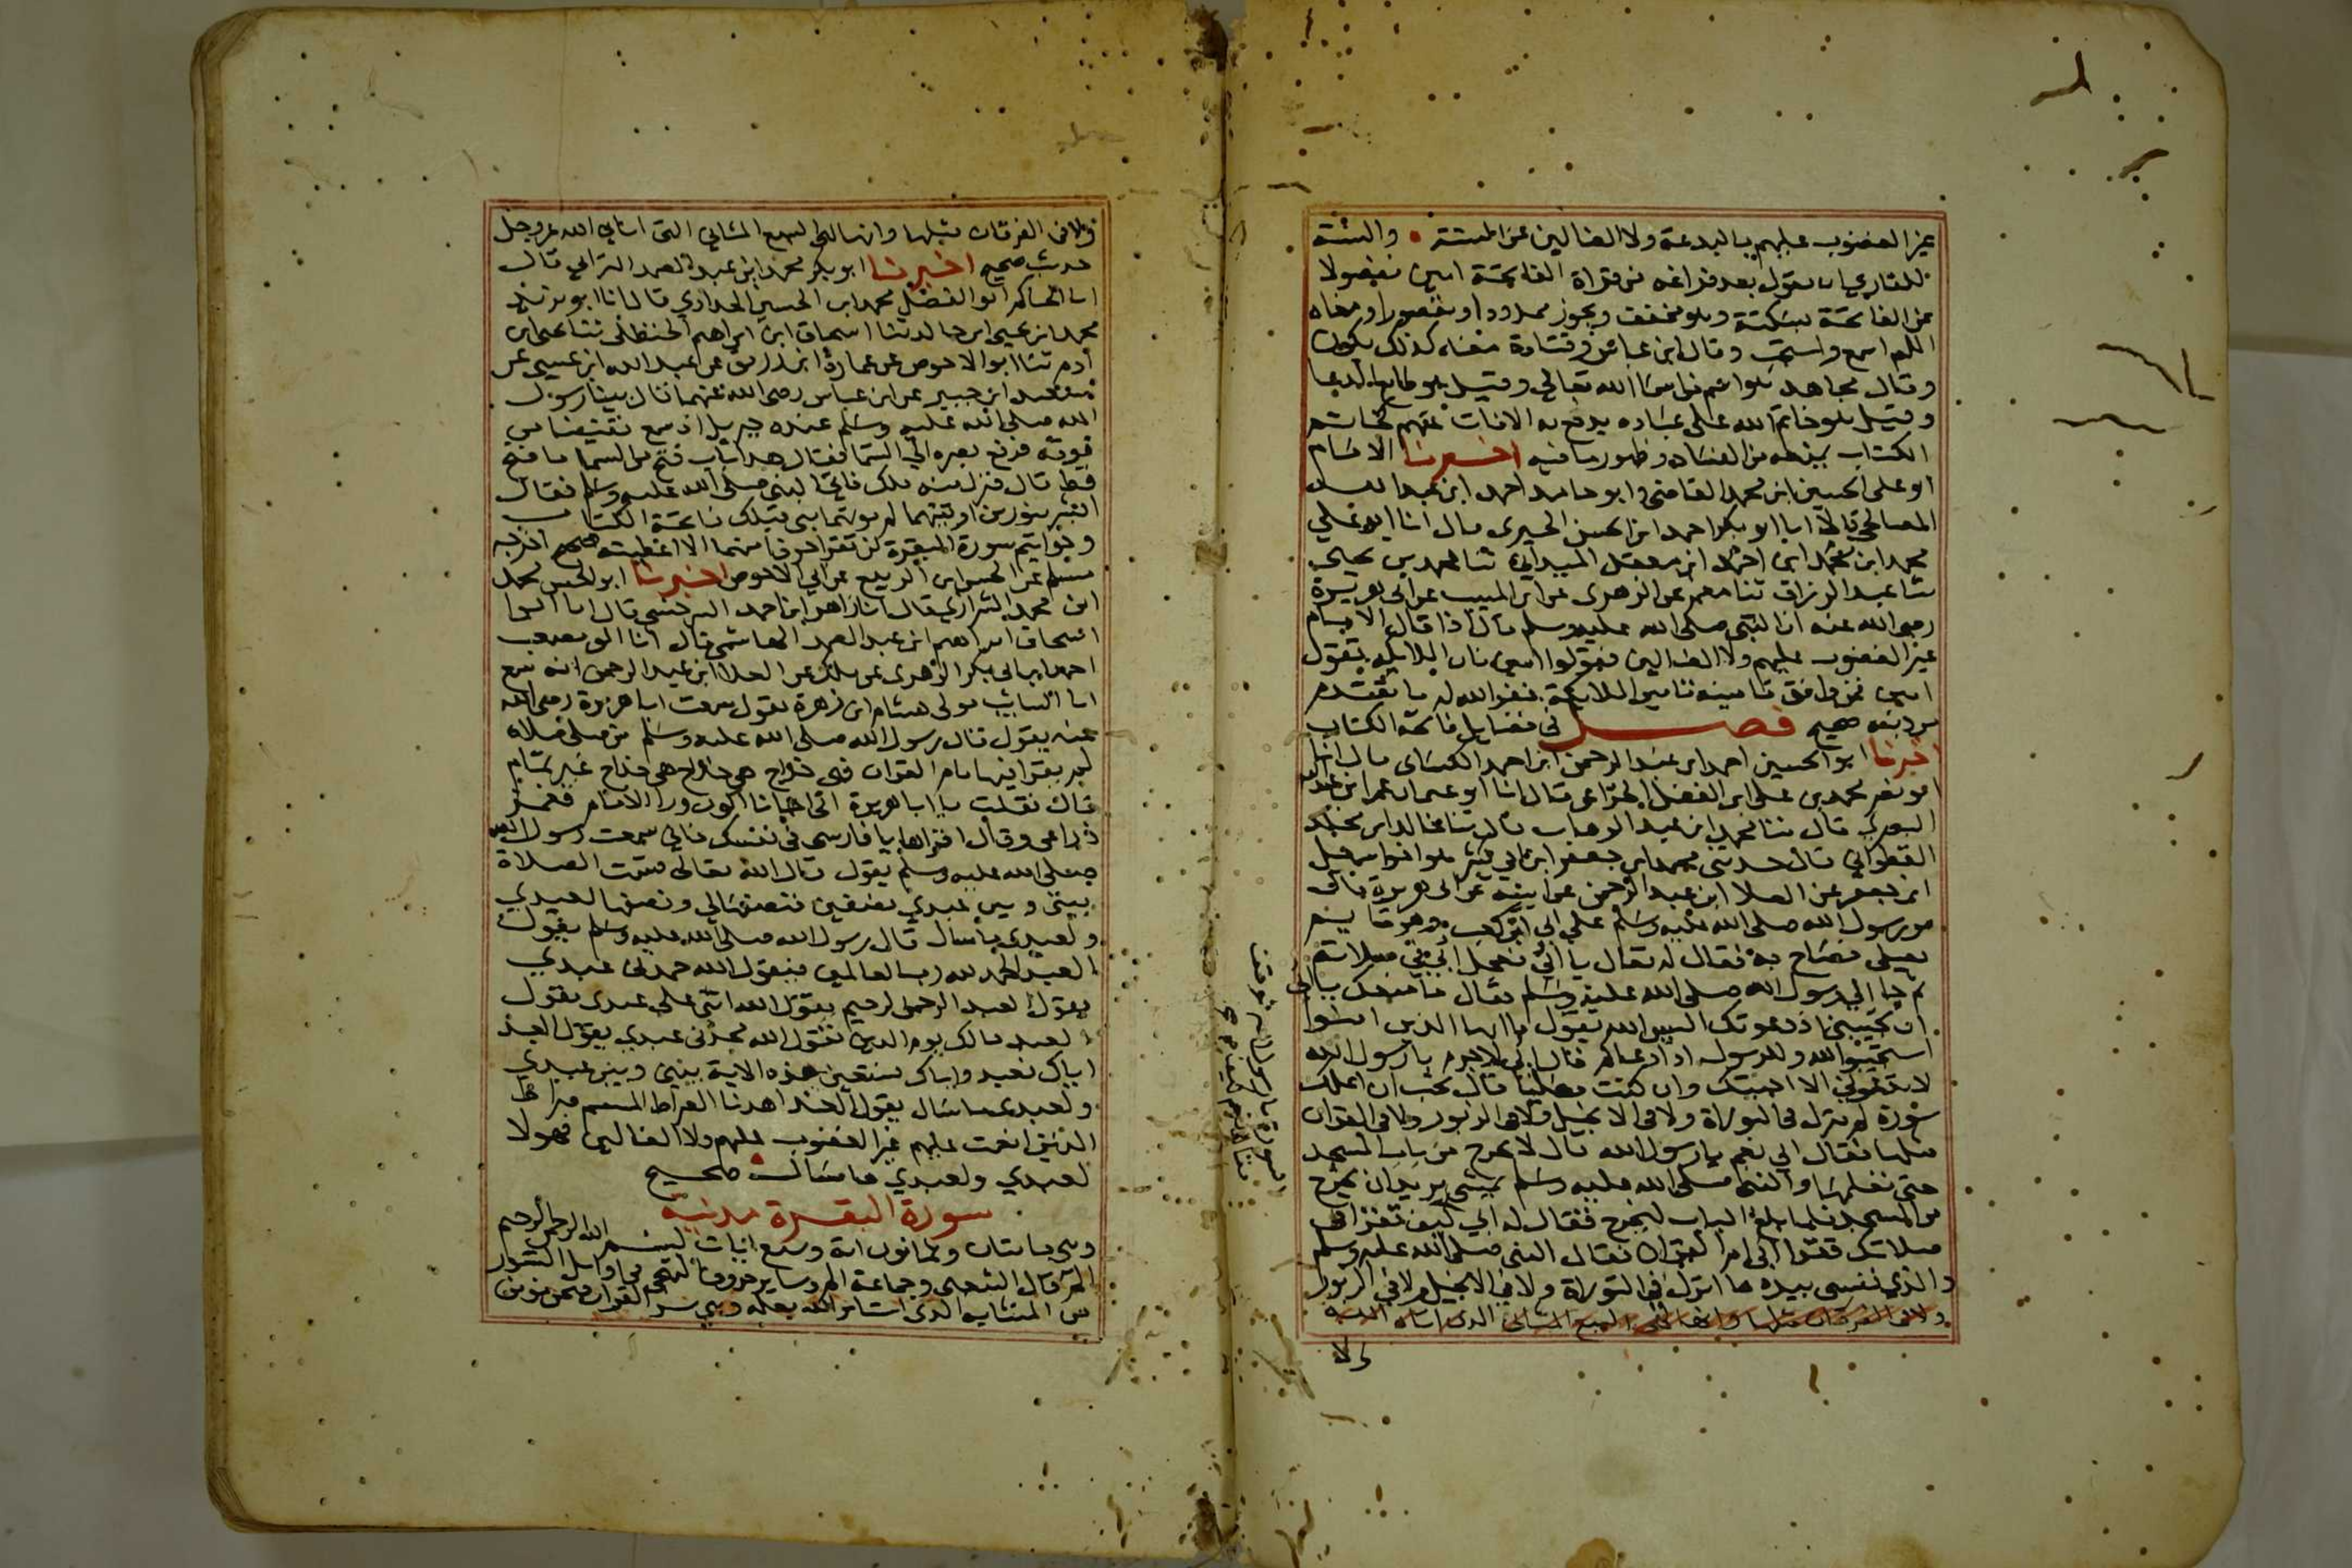 غير المغضوب عليهم بالبدعة ولا الضالين عن السنة • والسنة
للقاري ان يقول بعد فراغه من قراة الفاتحة امين مفصولا
عن الفاتحة بسكتة وهو مخفف ويجوز ممدودا ومقصورا ومعناه
اللهم اسمع واستجب وقال ابن عباس وقتادة معناه كذلك يكون
وقال مجاهد هو اسم من اسما الله تعالى وقيل هو طابع الدعا
وقيل هو خاتم الله على عباده يدفع به الافات عنهم كخاتم
الكتاب يمنعه من الفساد وظهور ما فيه اخبرنا الامام
ابو على الحسين ابن محمد القاضي وابو حامد احمد ابن عبد الله
الصالحي قالا انا ابو بكر احمد ابن الحسن الحيرى قال انا ابو علي
محمد ابن محمد ابن احمد ابن معقل الميداني ثنا محمد بن يحيى
ثنا عبد الرزاق ثنا معمر عن الزهرى عن ابن المسيب عن ابى هريرة
رضى الله عنه ان النبي صلى الله عليه وسلم قال اذا قال الامام
غير المغضوب عليهم ولا الضالين فقولوا امين فان الملايكة تقول
امين فمن وافق تامينه تامين الملايكة غفر الله له ما تقدم
من ذنبه صحيح فصل في فضايل فاتحة الكتاب
اخبرنا ابو الحسين احمد ابن عبد الرحمن ابن احمد الكسائى قال انا
ابو نصر محمد بن على ابن الفضل الخزاعى قال انا ابو عثمان عمر ابن عبد الله
البصري قال ثنا محمد ابن عبد الوهاب قال ثنا خالد ابن مخلد
القطواني قال حدثنى محمد ابن جعفر ابن ابي كثير هو اخو اسمعيل
ابن جعفر عن العلا ابن عبد الرحمن عن ابيه عن ابى هريرة قال
مر رسول الله صلى الله عليه وسلم على ابي ابن كعب وهو قايم
يصلى فصاح به فقال له تعال يا ابي فعجل ابي في صلاته
ثم جا الى رسول الله صلى الله عليه وسلم فقال ما منعك يا ابي
ان تجيبنى اذ دعوتك اليس الله يقول يا ايها الذين امنوا
استجيبوا لله وللرسول اذا دعاكم قال ابي لا جرم يا رسول الله
لا تدعوني الا اجبتك وان كنت مصليا قال تحب ان اعلمك
سورة لم تنزل في التوراة ولا في الانجيل ولا في الزبور ولا في القران
مثلها فقال ابي نعم يا رسول الله قال لا تخرج من باب المسجد
حتى تعلمها والنبي صلى الله عليه وسلم يمشى يريد ان يخرج
من المسجد فلما بلغ الباب ليخرج فقال له ابي كيف تقرا في
صلاتك فقرا ابي ام القران فقال النبي صلى الله عليه وسلم
والذي نفسى بيده ما انزل في التوراة ولا في الانجيل ولا في الزبور
ولا في الفرقان مثلها وانها لهى السبع المثاني الذى اتاه الله
ولا
ولا في الفرقان مثلها وانها لهي السبع المثاني التى اتاني الله عز وجل
حديث صحيح اخبرنا ابو بكر محمد ابن عبد الصمد الترابي قال
انا الحاكم ابو الفضل محمد ابن الحسين الحدادي قال انا ابو يزيد
محمد ابن يحيى ابن خالد ثنا اسحاق ابن ابراهيم الحنظلى ثنا يحيى ابن
آدم ثنا ابو الاحوص عن عمارة ابن زريق عن عبد الله ابن عيسى عن
سعيد ابن جبير عن ابن عباس رضى الله عنهما قال بينا رسول
الله صلى الله عليه وسلم عنده جبريل اذ سمع نقيضا من
فوقه فرفع بصره الى السما فقال هذا باب فتح من السما ما فتح
قط قال فنزل منه ملك فاتى النبي صلى الله عليه وسلم فقال
ابشر بنورين اوتيتهما لم يوتهما نبى قبلك فاتحة الكتاب
وخواتيم سورة البقرة لن تقرا حرفا منهما الا اعطيته صحيح اخرجه
مسلم عن الحسن ابن الربيع عن ابي الاحوص اخبرنا ابو الحسن محمد
ابن محمد الشرازي قال انا زاهر ابن احمد السرخسي قال انا ابو
اسحاق ابراهيم ابن عبد الصمد الهاشمي قال انا ابو مصعب
احمد ابن ابي بكر الزهرى عن ملك عن العلا ابن عبد الرحمن انه سمع
ابا السايب مولى هشام ابن زهرة يقول سمعت ابا هريرة رضى الله
عنه يقول قال رسول الله صلى الله عليه وسلم من صلى صلاة
لم يقرا فيها بام القران فهى خداج هي خداج هي خداج غير تمام
قال فقلت يا ابا هريرة اني احيانا اكون ورا الامام فغمز
ذراعى وقال اقراها يا فارسى في نفسك فاني سمعت رسول الله
صلى الله عليه وسلم يقول قال الله تعالى قسمت الصلاة
بينى وبين عبدي نصفين فنصفها لي ونصفها لعبدي
ولعبدي ما سال قال رسول الله صلى الله عليه وسلم يقول
العبد الحمد لله رب العالمين فيقول الله حمدنى عبدي
يقول العبد الرحمن الرحيم يقول الله اثنى على عبدى يقول
العبد مالك يوم الدين يقول الله مجدنى عبدي يقول العبد
اياك نعبد واياك نستعين هذه الاية بيني وبين عبدي
ولعبدي ما سال يقول العبد اهدنا الصراط المستقيم صراط
الذين انعمت عليهم غير المغضوب عليهم ولا الضالين فهولا
لعبدي ولعبدي ما سال صحيح
سورة البقرة مدنية
وهي مايتان وثمانون اية وسبع ايات بسم الله الرحمن الرحيم
الم قال الشعبى وجماعة الم وساير حروف التهجى في اوايل السور
من المتشابه الذى استاثر الله بعلمه وهي سر القران فنحن نومن